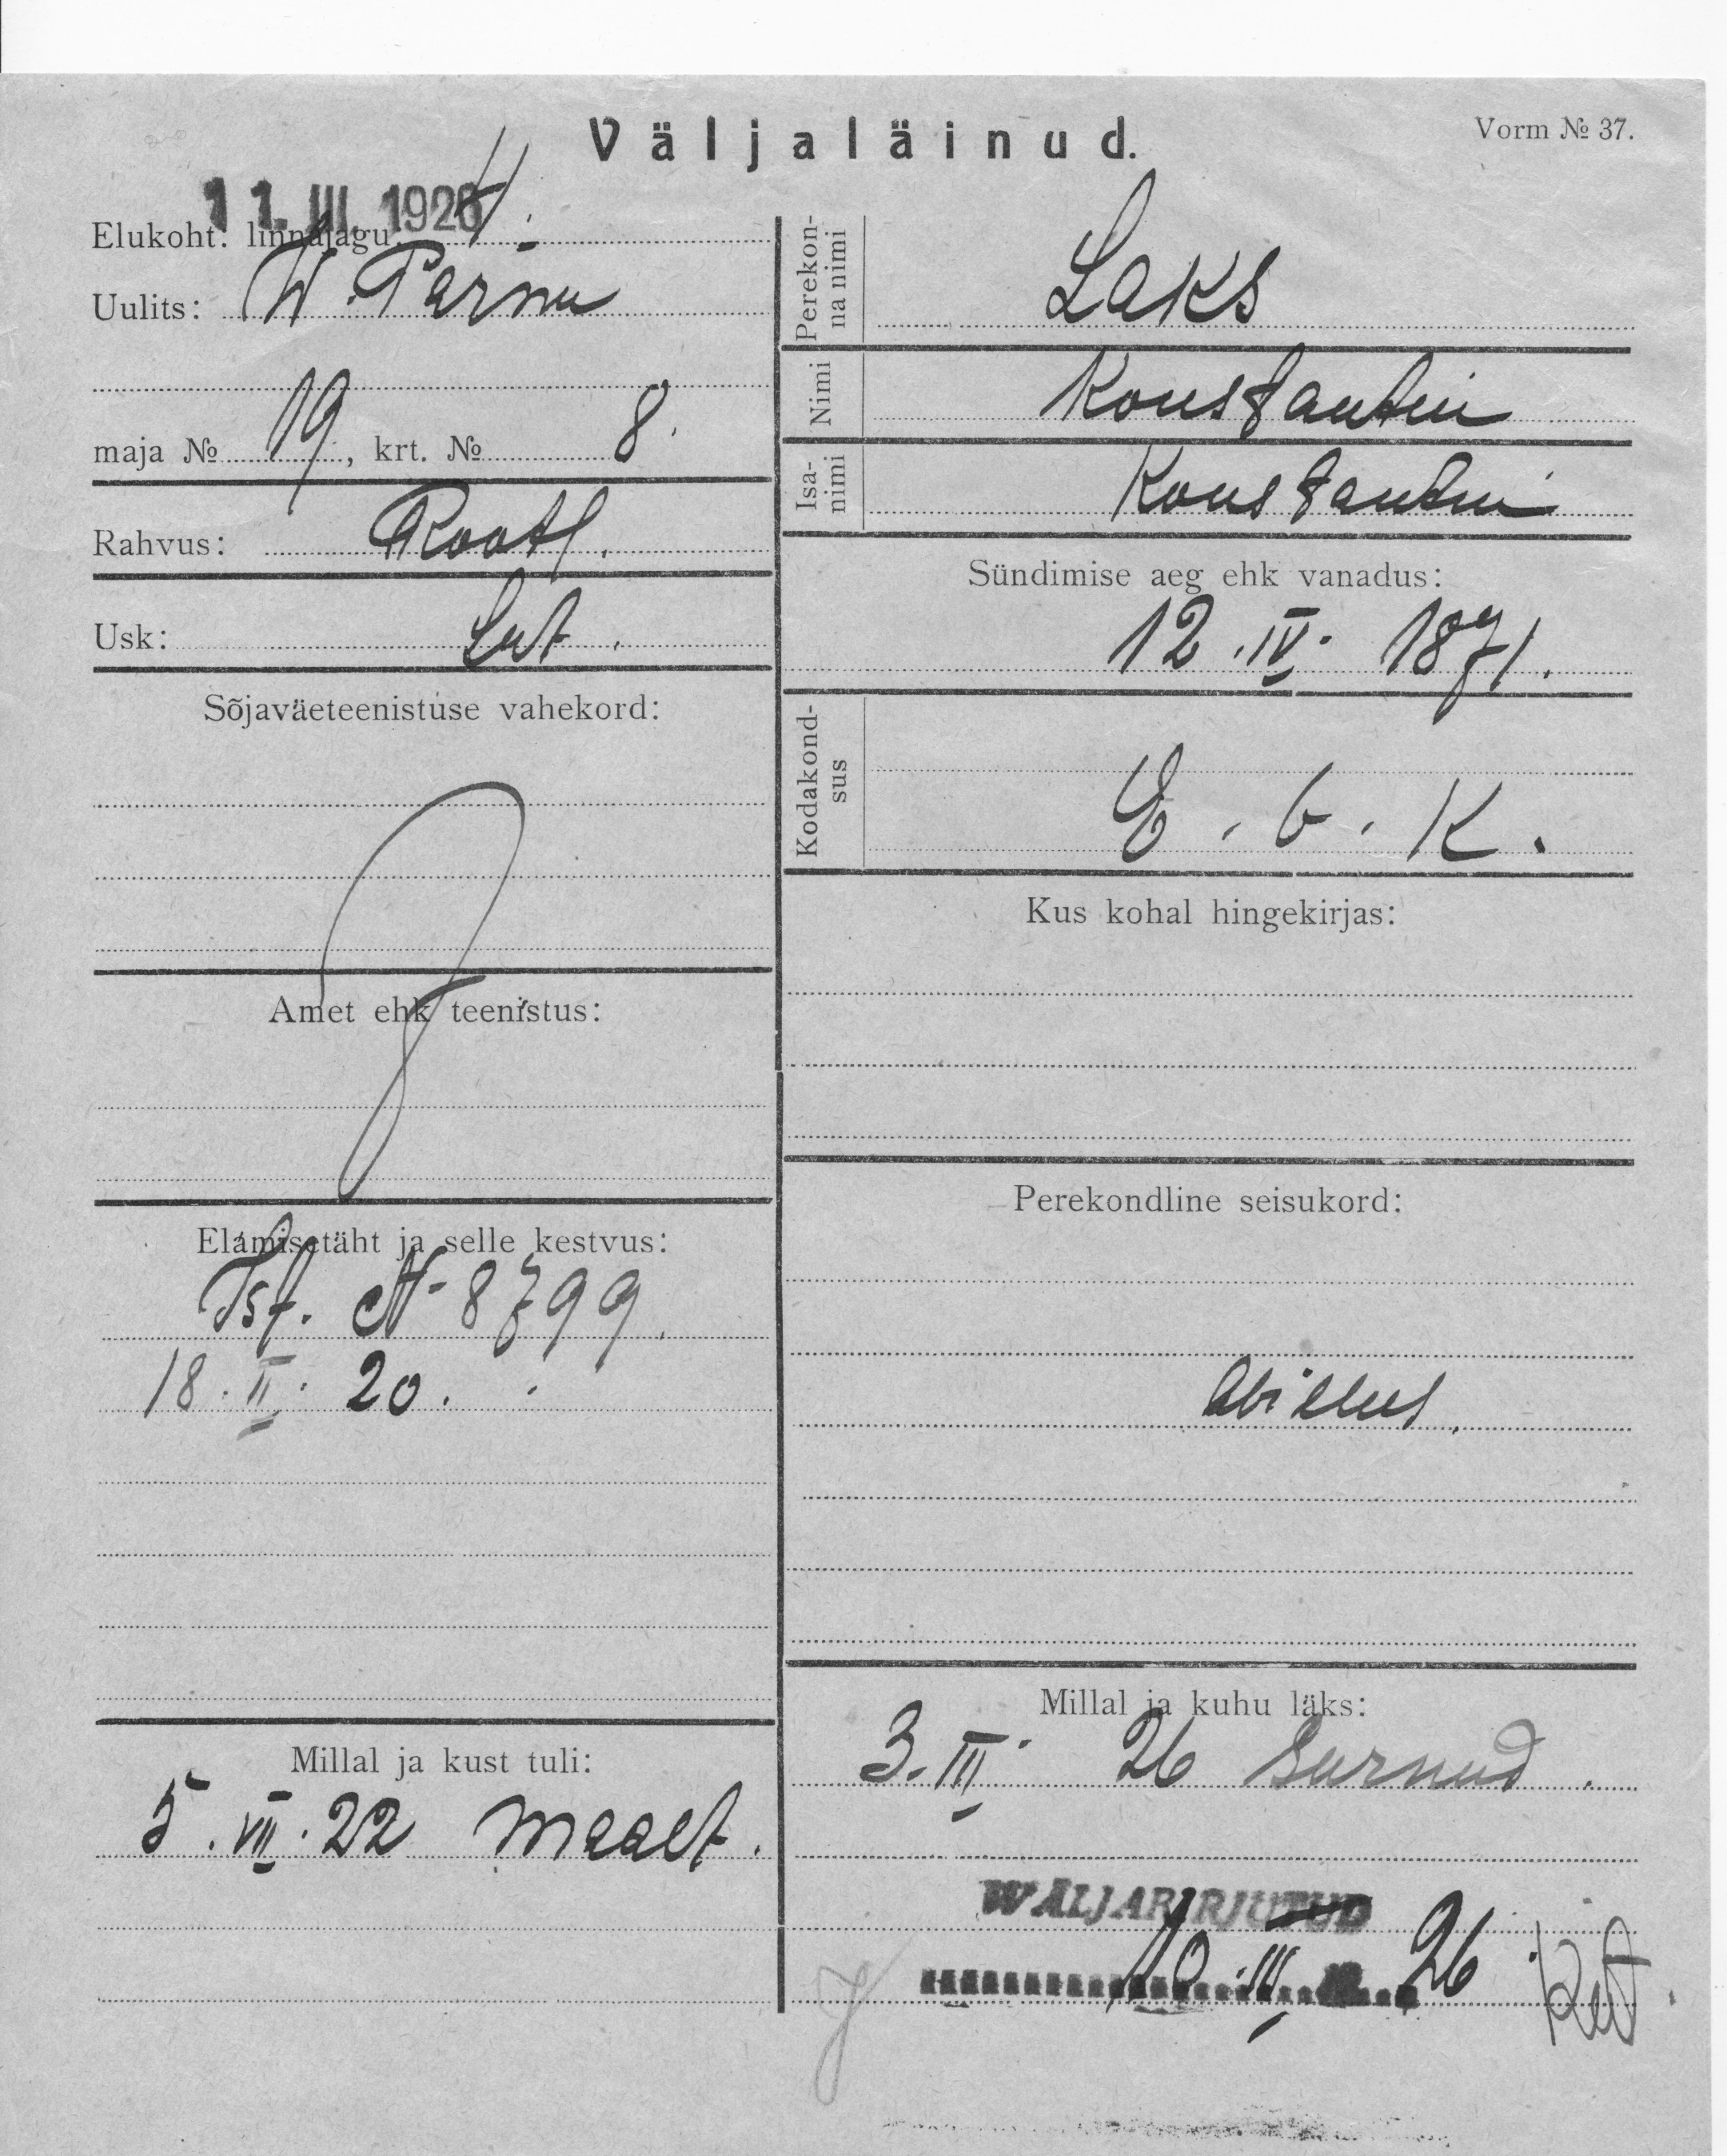 Väljaläinud.
Vorm № 37.
11. III. 1926
Elukoht: linnajagu
Uulits: W. Pärnu
maja № 19, krt. № 8.
Rahvus: Rootl.
Usk: Lut.
Sõjaväeteenistuse vahekord:
Amet ehk teenistus:
Elamisetäht ja selle kestvus:
Tst. N 8799.
18. II. 20.
Millal ja kust tuli:
5. VII. 22 maalt.
Perekonna nimi
Laks
Nimi
Konstantin
Isanimi
Konstantin
Sündimise aeg ehk vanadus:
12. IV. 1871.
Kodakondsus
E. v. K.
Kus kohal hingekirjas:
Perekondline seisukord:
abielus.
Millal ja kuhu läks:
3. III. 26 surnud.
WÄLJAKIRJUTUD
10. III 26